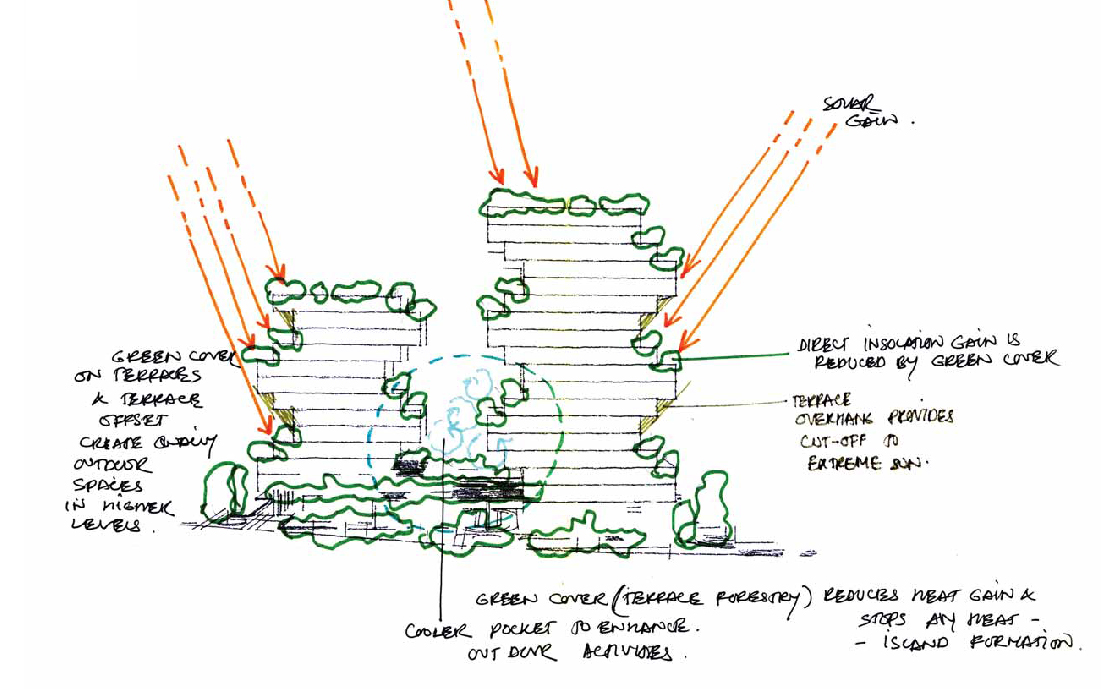 SOLAR
GAIN.
GREEN COVER
ON TERRACES
& TERRACE
OFFSET
CREATE QUALITY
OUTDOOR
SPACES
IN HIGHER
LEVELS.
DIRECT INSOLATION GAIN IS
REDUCED BY GREEN COVER
TERRACE
OVERHANG PROVIDES
CUT-OFF TO
EXTREME SUN.
GREEN COVER (TERRACE FORESTRY) REDUCES HEAT GAIN &
STOPS ANY HEAT -
- ISLAND FORMATION.
COOLER POCKET TO ENHANCE.
OUTDOOR ACTIVITIES.